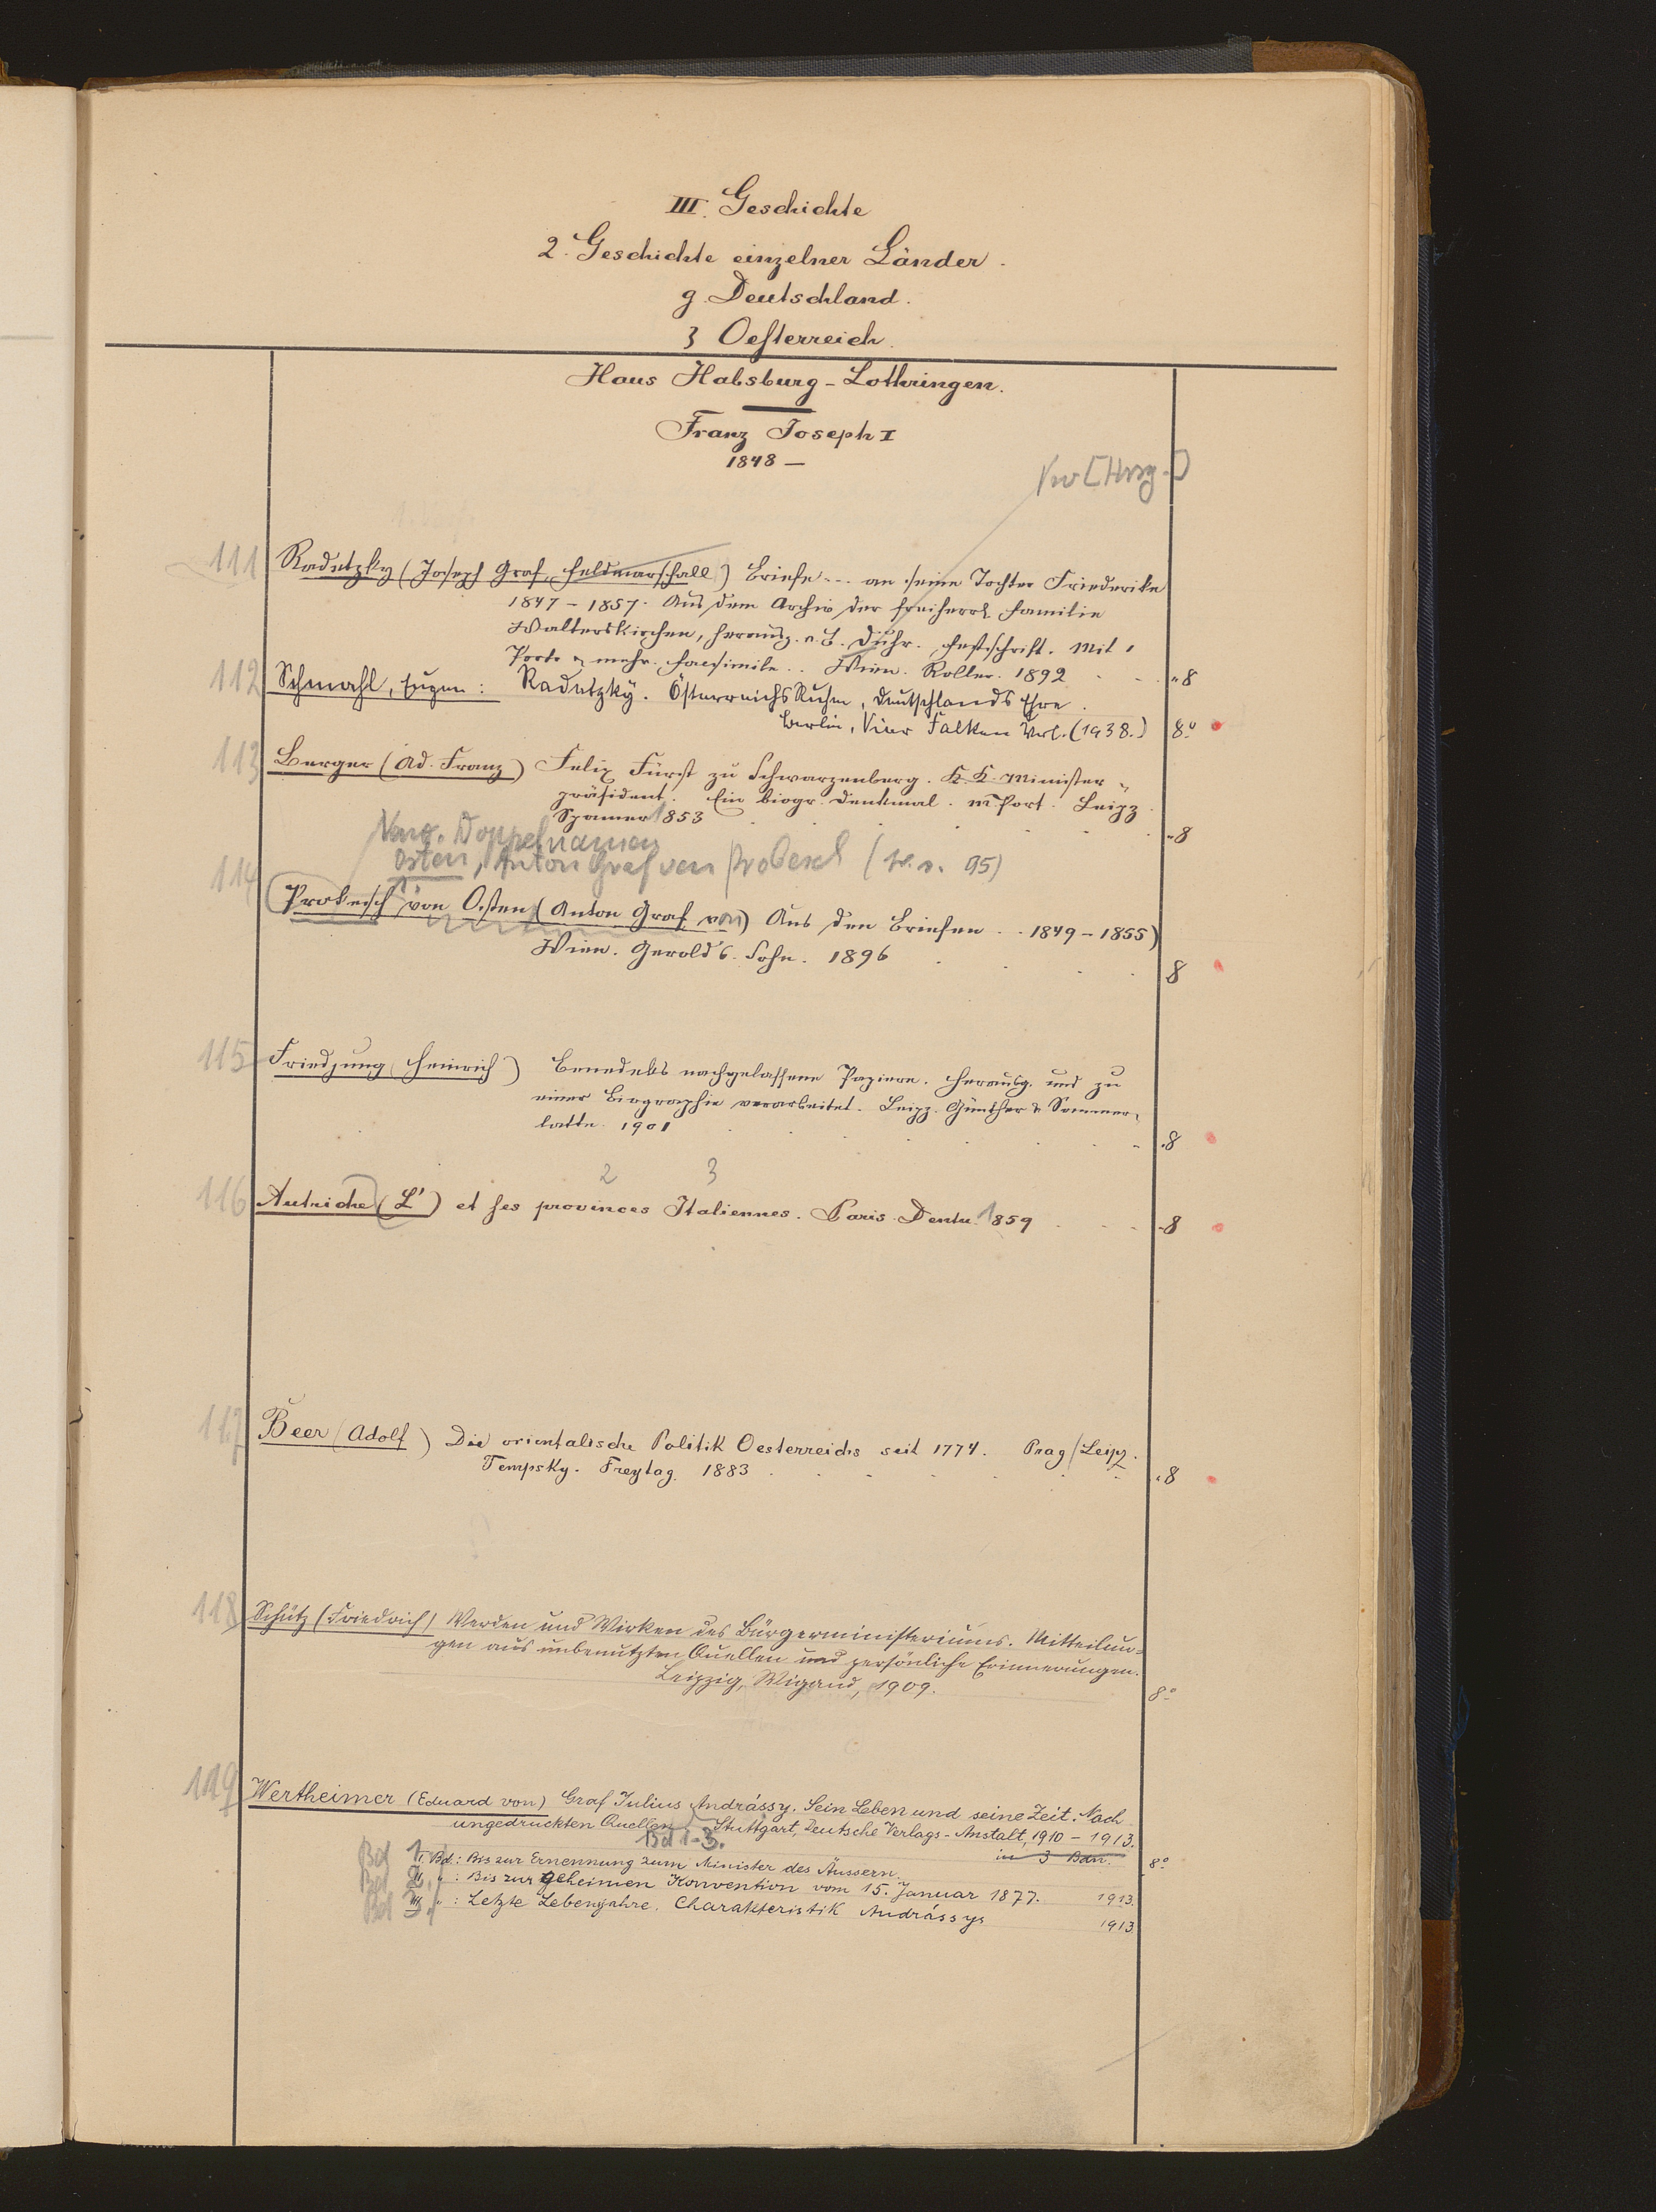 III. Geschichte
2. Geschichte einzelner Länder.
g. Deutschland.
3 Oesterreich.
Haus Habsburg-Lothringen.
Franz Joseph I
1848 —
Vw [Hrsg.]
111 Radetzky (Joseph Graf, Feldmarschall) Briefe ... an seine Tochter Friederike
1847-1857. Aus dem Archiv der freiherrl. Familie
Walterskirchen, herausg. v. B. Duhr. Festschrift. Mit 1
Portr. & mehr. Facsimile.. Wien. Roller. 1892 . . . 8
112 Schmahl, Eugen: Radetzky. Österreichs Ruhm, Deutschlands Ehre.
Berlin, Vier Falken Verl. (1938.) 8°
113 Berger (Ad. Franz) Felix Fürst zu Schwarzenberg. K.K. Minister-
präsident. Ein biogr. Denkmal. m Port. Leipz.
Spamer 1853 . . . . 8
Verw. Doppelnamen
Osten, Anton Graf von Prokesch (s. n. 95)
114 Prokesch von Osten (Anton Graf von) Aus den Briefen .. 1849-1855)
Wien. Gerold's Sohn. 1896 . . . 8
115 Friedjung Heinrich) Benedeks nachgelassene Papiere. Herausg. und zu
einer Biographie verarbeitet. Leipz. Günther & Sommer-
latte. 1901 . . . . . . 8
2 3
116 Autriche (L') et ses provinces Italiennes. Paris. Dentu. 1859 . . . 8
117 Beer (Adolf) Die orientalische Politik Oesterreichs seit 1774. Prag/Leipz.
Tempsky. Freytag. 1883 . . . . . . . 8
118 Schütz (Friedrich) Werden und Wirken des Bürgerministeriums. Mitteilun-
gen aus unbenutzten Quellen und persönliche Erinnerungen.
Leipzig, Wigand, 1909. 8°
119 Wertheimer (Eduard von) Graf Julius Andrássy. Sein Leben und seine Zeit. Nach
ungedruckten Quellen Stuttgart, Deutsche Verlags-Anstalt, 1910-1913.
Bd 1-3. in 3 Bdn. 8°
Bd 1. I. Bd.: Bis zur Ernennung zum Minister des Äussern.
Bd 2. II. " : Bis zur geheimen Konvention vom 15. Januar 1877. 1913.
Bd 3. III. " : Letzte Lebensjahre. Charakteristik Andrássys 1913.